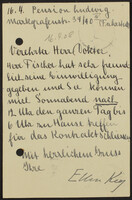 16.9. Pension Ludwig
Markgrafenstr 59/60
Verehrter Herr Doktor,
Herr Fischer hat sehr freund
seine Einwilligung
gegeben und Sie können
mir Sonnabend nach
12 Uhr den ganzen Tag bis
6 Uhr zu Hause treffen
für das Kontrakt
Mit herzlichem Gruss
Ihre
Ellen Key